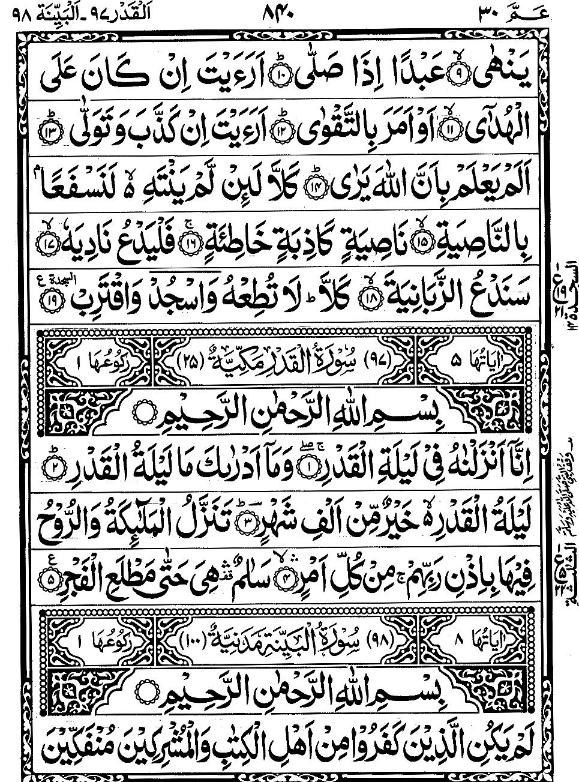 عَمَّ ٣٠
٨٤٠
اَلْقَدْر ٩٧۔ اَلْبَيِّنَة ٩٨
يَنْهٰى ۙ‏﴿۹﴾ عَبْدًا اِذَا صَلّٰىؕ‏﴿۱۰﴾ اَرَءَيْتَ اِنْ كَانَ عَلَى
الْهُدٰٓىۙ‏﴿۱۱﴾ اَوْ اَمَرَ بِالتَّقْوٰىؕ‏﴿۱۲﴾ اَرَءَيْتَ اِنْ كَذَّبَ وَتَوَلّٰىؕ‏﴿۱۳﴾
اَلَمْ يَعْلَمْ بِاَنَّ اللّٰهَ يَرٰىؕ‏﴿۱۴﴾ كَلَّا لَئِنْ لَّمْ يَنْتَهِ ۙ لَنَسْفَعًۢا
بِالنَّاصِيَةِۙ‏﴿۱۵﴾ نَاصِيَةٍ كَاذِبَةٍ خَاطِئَةٍ‌ۚ‏﴿۱۶﴾ فَلْيَدْعُ نَادِيَهٗ ۙ‏﴿۱۷﴾
سَنَدْعُ الزَّبَانِيَةَ ۙ‏﴿۱۸﴾ كَلَّا ؕ لَا تُطِعْهُ وَاسْجُدْ وَاقْتَرِبْ‏﴿۱۹﴾
السجدة ع
السجدة ١٤
ع ١٩
اٰيَاتُهَا ٥
(٩٧) سُوْرَةُ الْقَدْرِ مَكِّيَّةٌ (٢٥)
رُكُوْعُهَا ١
بِسْمِ اللّٰهِ الرَّحْمٰنِ الرَّحِيْمِ
اِنَّاۤ اَنْزَلْنٰهُ فِىْ لَيْلَةِ الْقَدْرِ ۖۚ‏﴿۱﴾ وَمَاۤ اَدْرٰىكَ مَا لَيْلَةُ الْقَدْرِؕ‏﴿۲﴾
لَيْلَةُ الْقَدْرِ ۙ خَيْرٌ مِّنْ اَلْفِ شَهْرٍؕ‏﴿۳﴾ تَنَزَّلُ الْمَلٰٓئِكَةُ وَالرُّوْحُ
فِيْهَا بِاِذْنِ رَبِّهِمْ‌ۚ مِنْ كُلِّ اَمْرٍ ۛۙ‏﴿۴﴾ سَلٰمٌ ۛ هِىَ حَتّٰى مَطْلَعِ الْفَجْرِ‏﴿۵﴾
ع
اٰيَاتُهَا ٨
(٩٨) سُوْرَةُ الْبَيِّنَةِ مَدَنِيَّةٌ (١٠٠)
رُكُوْعُهَا ١
بِسْمِ اللّٰهِ الرَّحْمٰنِ الرَّحِيْمِ
لَمْ يَكُنِ الَّذِيْنَ كَفَرُوْا مِنْ اَهْلِ الْكِتٰبِ وَالْمُشْرِكِيْنَ مُنْفَكِّيْنَ